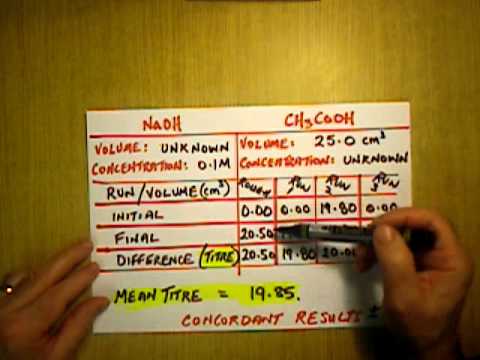 NaOH CH3COOH
VOLUME: UNKNOWN VOLUME: 25.0 cm³
CONCENTRATION: 0.1M CONCENTRATION: UNKNOWN
RUN/VOLUME (cm³) ROUGH
INITIAL 0.00 0.00 19.80 0.00
FINAL 20.50
DIFFERENCE (TITRE) 20.50 19.80
MEAN TITRE = 19.85.
CONCORDANT RESULTS ±